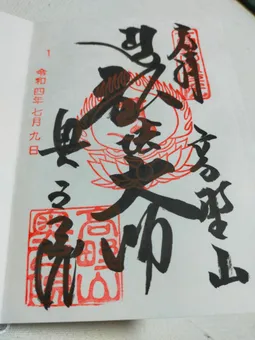 奉拝
高野山
弘法大師
奥之院
1
令和四年七月九日